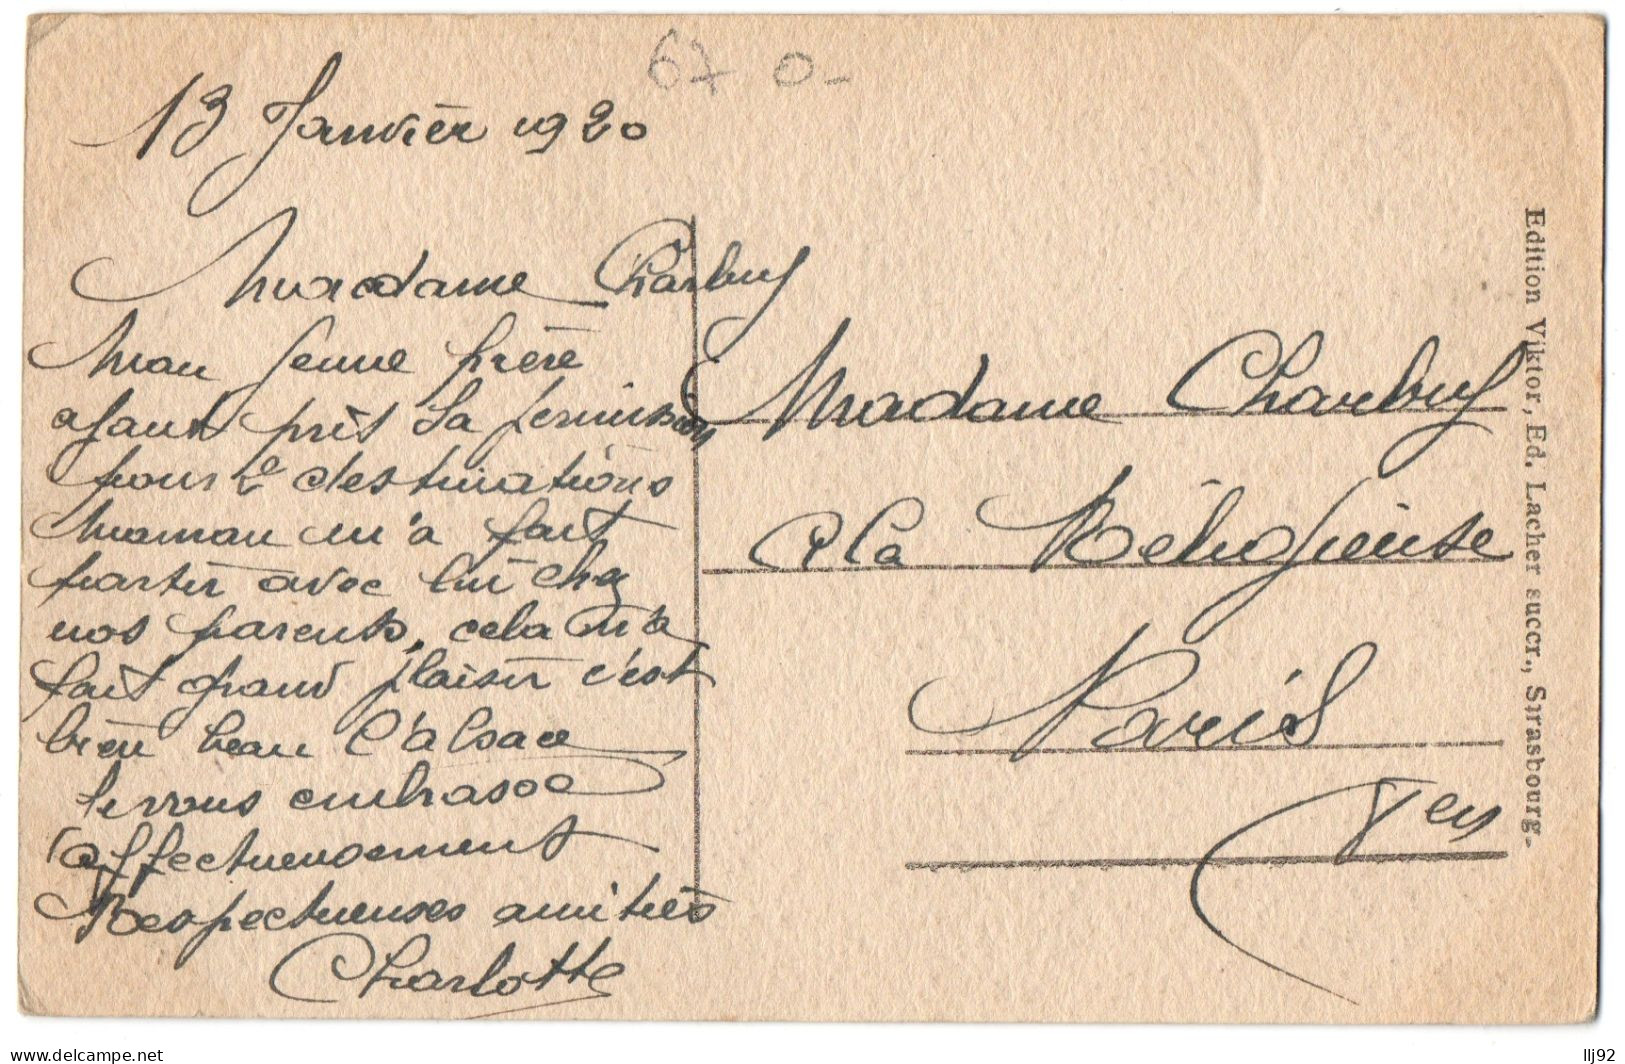 67 0-
13 Janvier 1920
Madame Charbuy
Mon jeune frère
ayant pris sa permission
pour 2 destinations
maman m'a fait
partir avec lui chez
nos parents, cela m'a
fait grand plaisir c'est
bien beau l'alsace
je vous embrasse
affectueusement
Respectueuses amitiés
Charlotte
Madame Charbuy
a la Religieuse
Paris
Edition Viktor, Ed. Lacher succr., Strasbourg.
delcampe.net
llj92